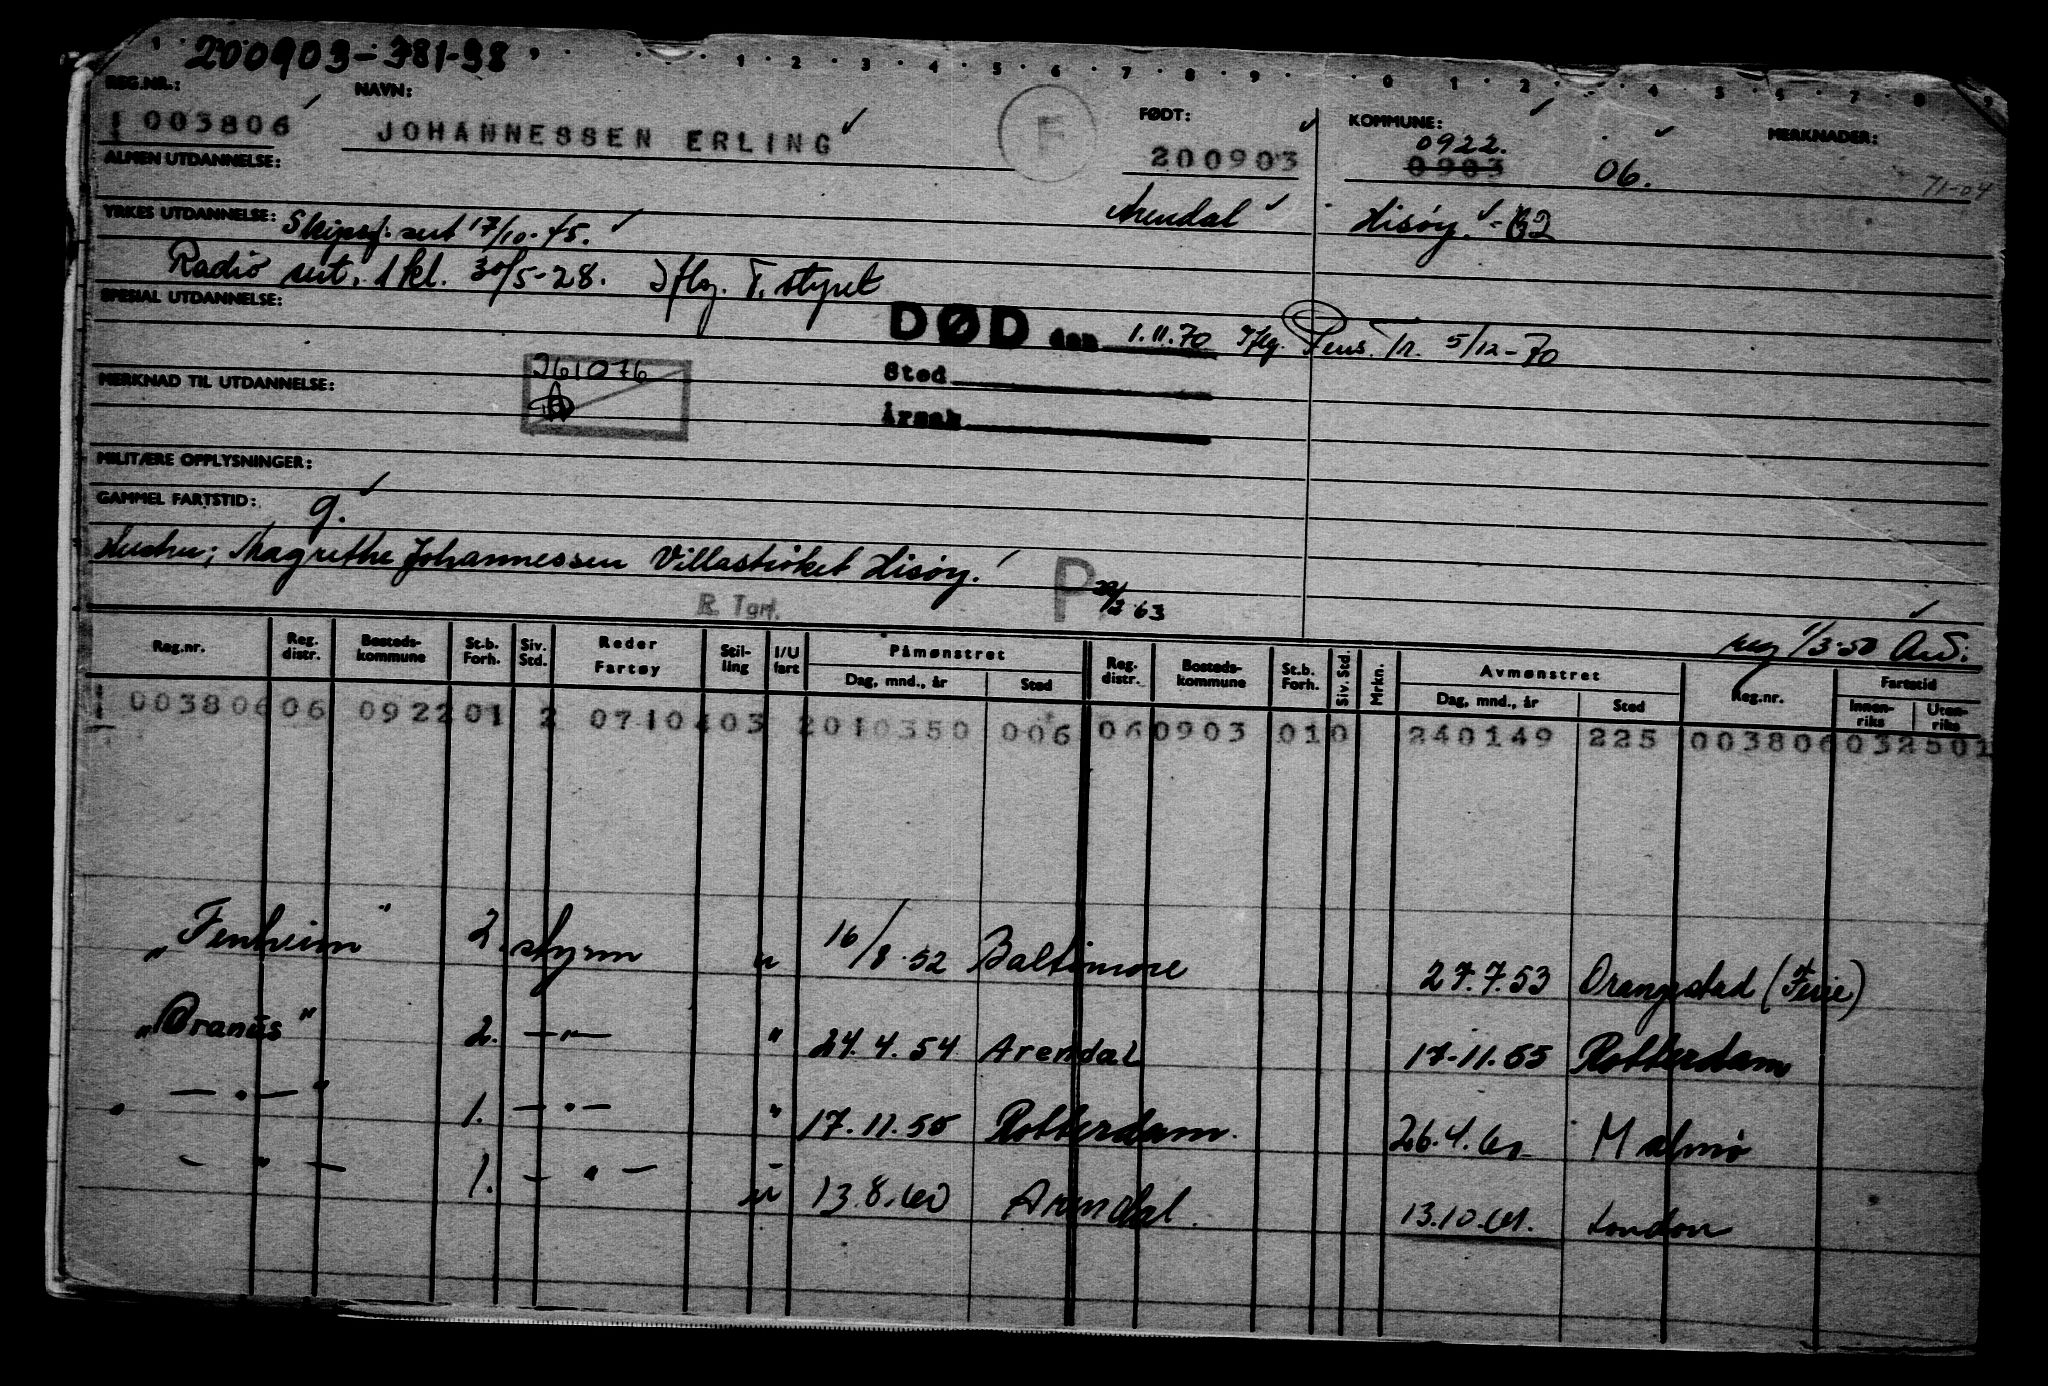 200903-381-98
1 2 3 4 5 6 7 8 9 0 1 2 4 5 6 7 8 9
REG.NR.: NAVN: FØDT: KOMMUNE: MERKNADER:
I 003806 JOHANNESSEN ERLING F 200903 0922. 0903 06. 71-04
ALMEN UTDANNELSE: Arendal Hisøy. - B2
YRKES UTDANNELSE: Skipsf. sert 17/10-45.
Radio sert. 1 kl. 30/5-28. Iflg. T. styret
SPESIAL UTDANNELSE:
DØD den 1.11.70 Iflg. Pens. Tr. 5/12-70
261076 Sted
MERKNAD TIL UTDANNELSE: Årsak
MILITÆRE OPPLYSNINGER:
GAMMEL FARTSTID: 9.
Hustru; Magrethe Johannessen Villastrøket Hisøy.
R. Tgrf. P 22/2 63
reg 1/3-50 Ard.
Reg.nr. Reg. distr. Bosteds-kommune St.b. Forh. Siv. Std. Reder Fartøy Stil-ling I/U fart Påmønstret Dag, mnd., år Sted Reg. distr. Bosteds-kommune St.b. Forh. Siv. Std. Mrkn. Avmønstret Dag, mnd., år Sted Reg.nr. Fartstid Innen-riks Uten-riks
003806 06 0922 01 2 0710 403 2010350 006 06 0903 01 0 240149 225 003806 032501
„Fernheim" 2. styrm u 16/8.52 Baltimore 27.7.53 Orangestad (Ferie)
„Oranüs" 2. —"— " 24.4.54 Arendal 17-11.55 Rotterdam
—"— " 1. —"— " 17.11.55 Rotterdam. 26.4.60 Malmö
— " — 1. — " — u 13.8.60 Arendal. 13.10.61. London